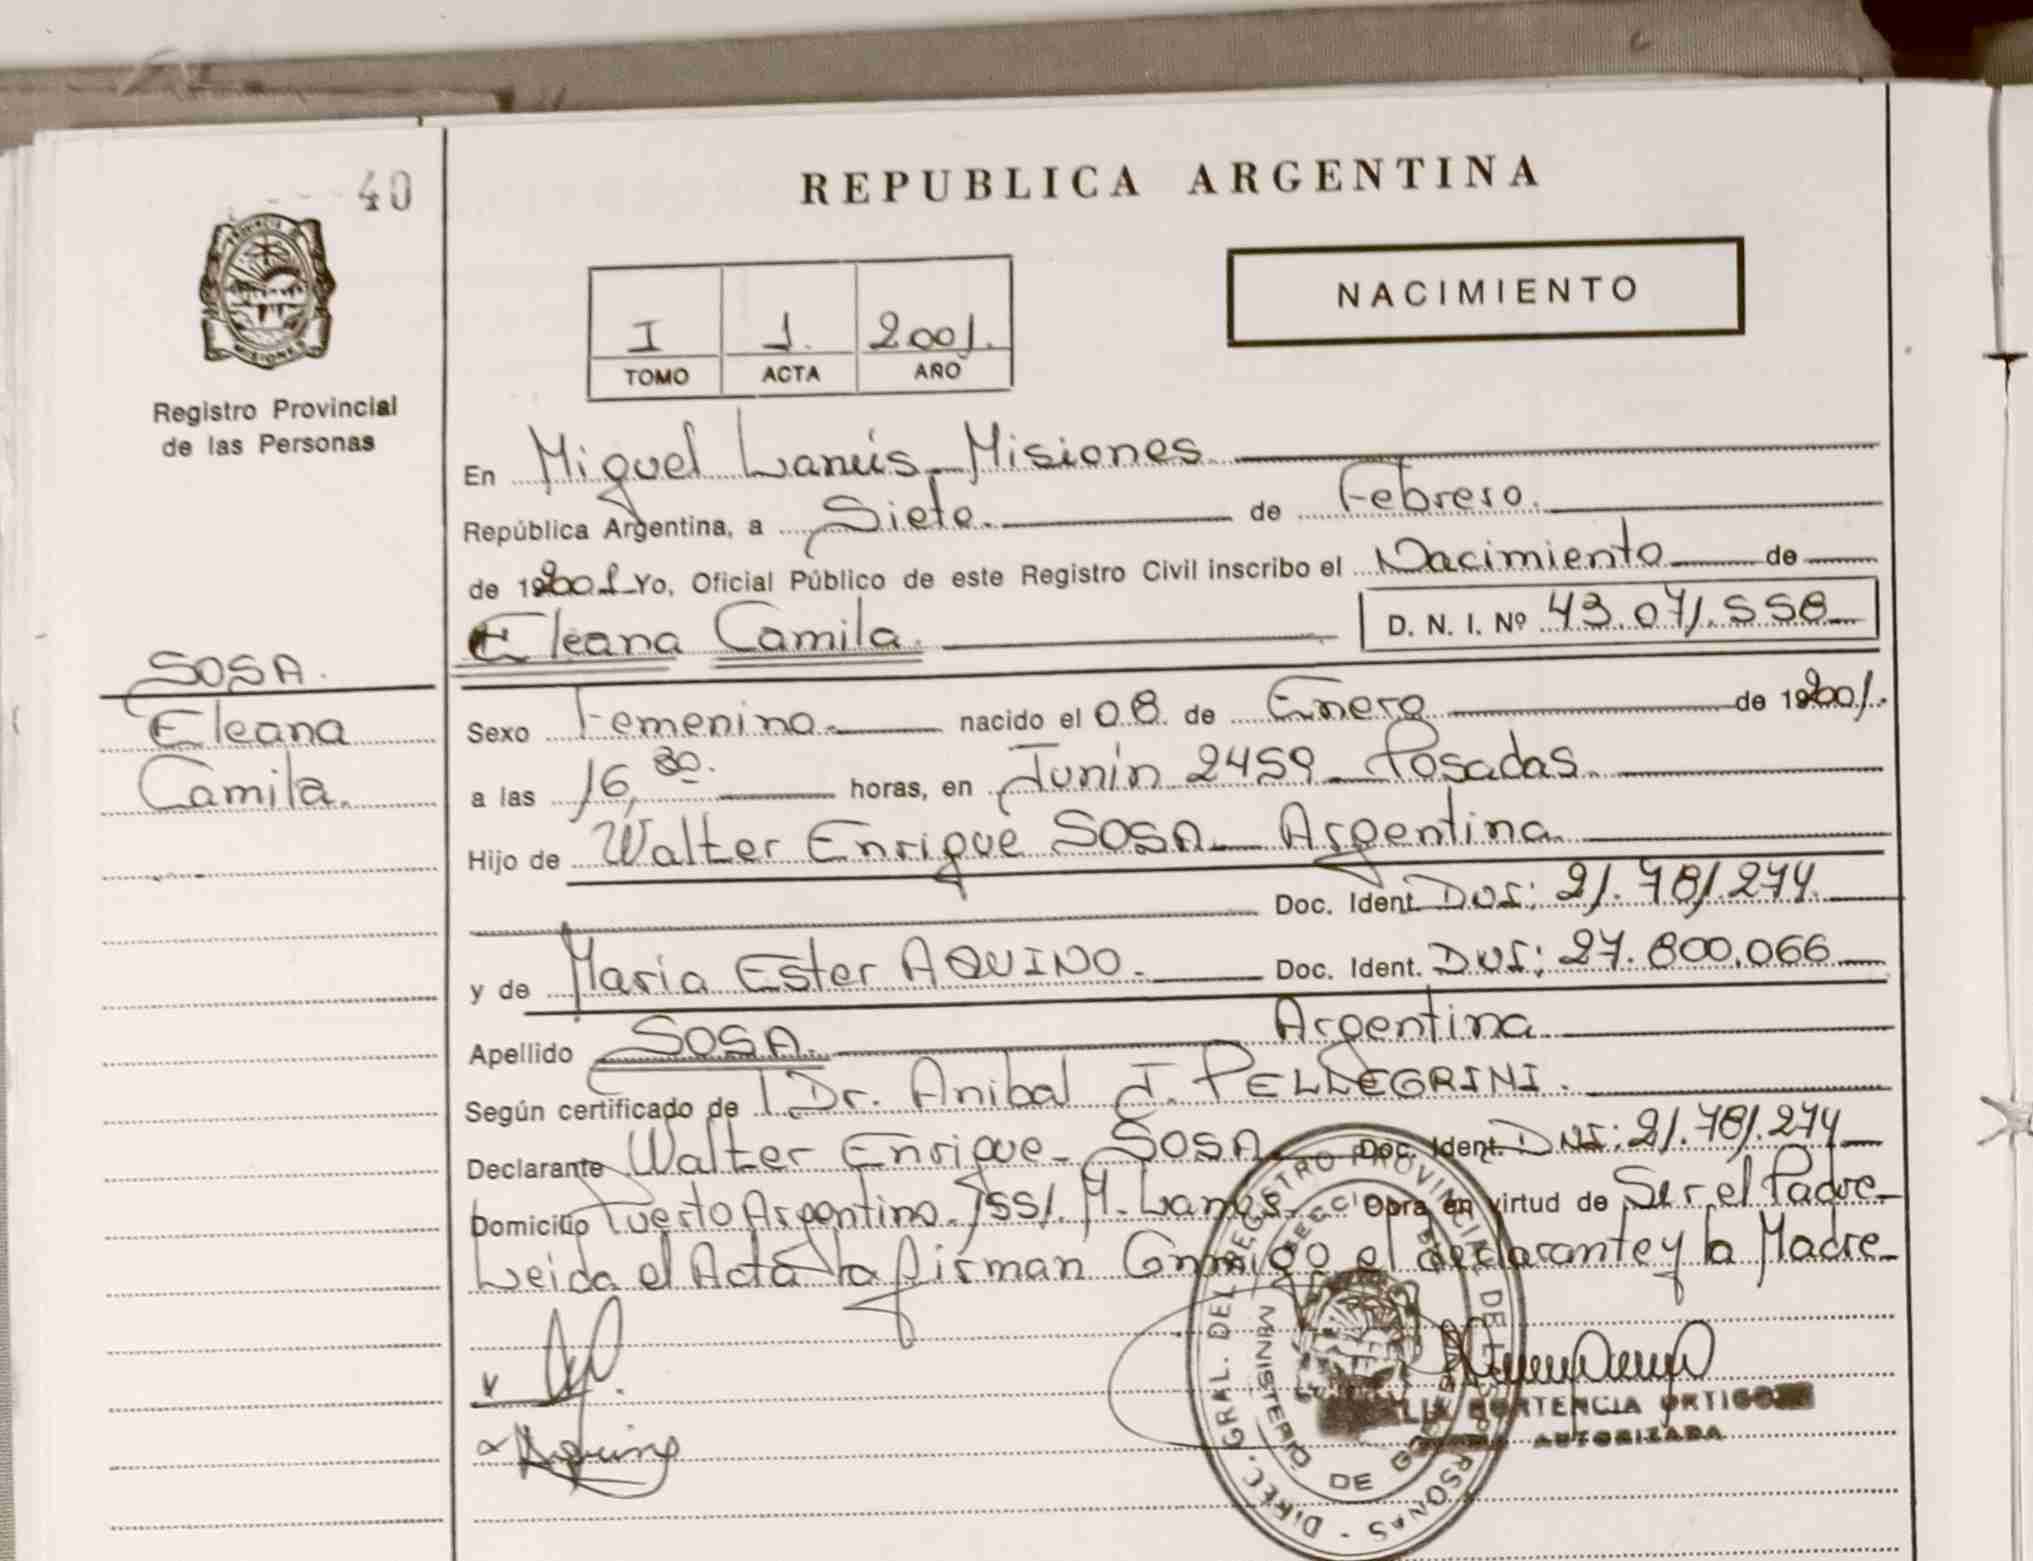 40
REPUBLICA ARGENTINA
PROVINCIA DE
MISIONES
Registro Provincial
de las Personas
NACIMIENTO
I 1. 2001.
TOMO ACTA AÑO
En Miguel Lanús - Misiones
República Argentina, a Siete. de Febrero.
de 192001 Yo, Oficial Público de este Registro Civil inscribo el Nacimiento de
Eleana Camila. D. N. I. Nº 43.071.558
SOSA.
Eleana
Camila.
Sexo Femenino. nacido el 08. de Enero de 192001.
a las 16,30. horas, en Junín 2459 - Posadas.
Hijo de Walter Enrique SOSA - Argentina
Doc. Ident. DNI: 21.781.274.
y de María Ester AQUINO. Doc. Ident. DNI: 27.800.066
Apellido SOSA. Argentina
Según certificado de Dr. Anibal J. PELLEGRINI.
Declarante Walter Enrique - SOSA Doc. Ident. DNI: 21.781.274
Domicilio Puerto Argentino. 1551. M. Lanús Obra en virtud de Ser el Padre
Leida el Acta la firman Conmigo el declarante y la Madre
Aquino
HORTENCIA ORTIGOZA
AUTORIZADA
DIREC. GRAL. DEL REGISTRO PROVINCIAL DE LAS PERSONAS
MINISTERIO DE